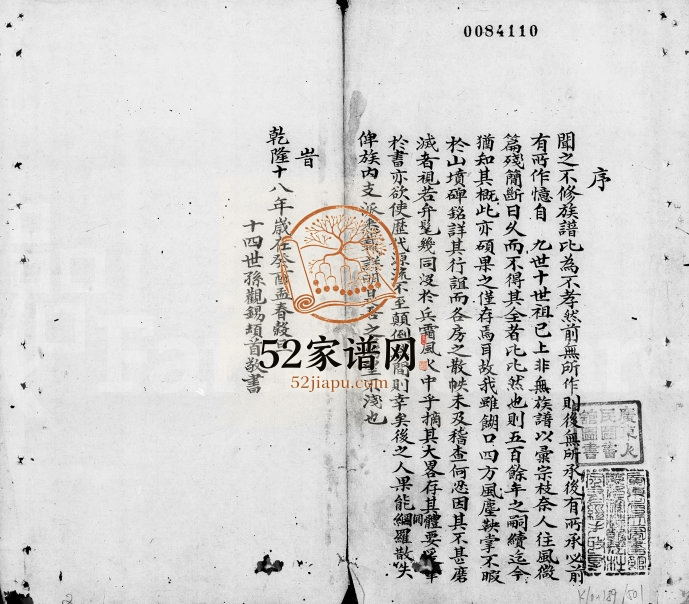 0084110
序
聞之不修族譜比為不孝然前無所作則後無所承後有所承必前
有所作憶自 九世十世祖已上非無族譜以彙宗枝奈人往風微
篇殘簡斷日久而不得其全者比比然也則五百餘年之嗣續迄今
猶知其概此亦碩果之僅存焉耳故我雖餬口四方風塵鞅掌不暇
於山墳碑銘詳其行誼而各房之散帙未及稽查何恐因其不甚磨
滅者視若弁髦幾同沒於兵霜風火中乎摘其大畧存其體要
於書亦欲使歷代源流不至顛倒間則幸矣後之人果能網羅散失
俾族內支派 淺也
旹
乾隆十八年歲在癸酉孟春穀
十四世孫觀錫頓首敬書
52家谱网
52jiapu.com
廣東人民圖書館圖書
2